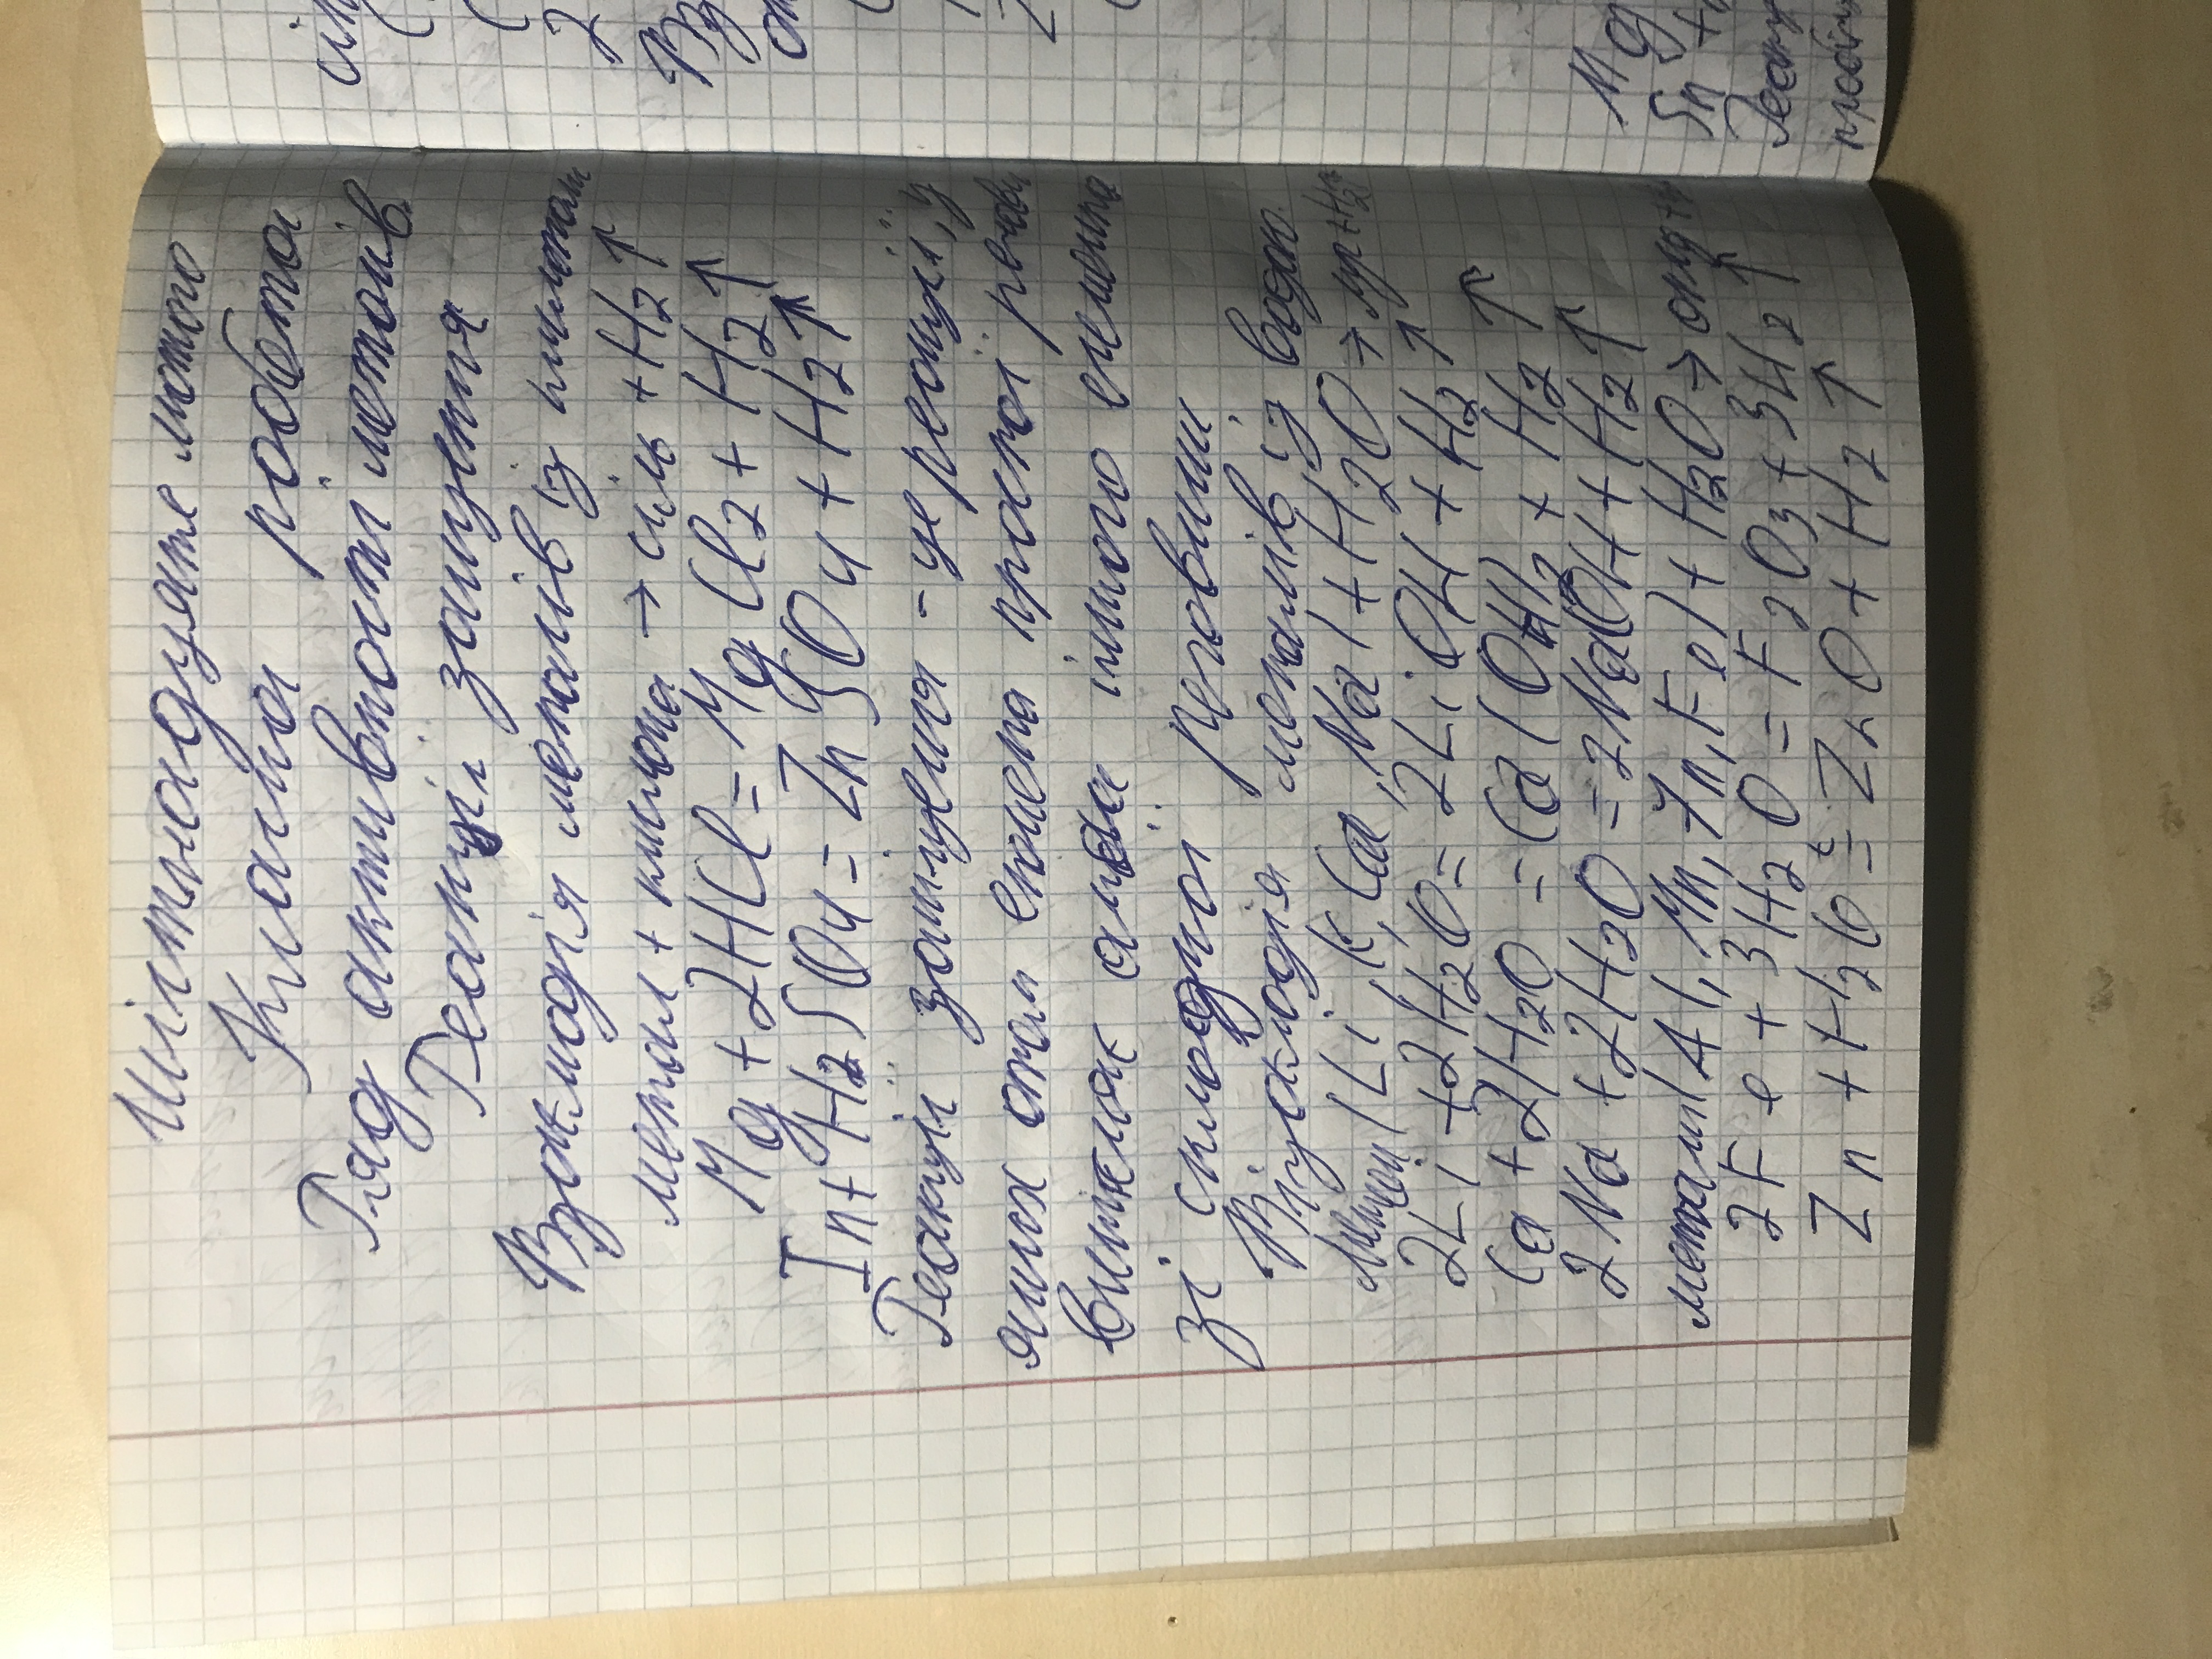 Шістнадцяте лютого
Класна робота
Ряд активності металів
Реакція заміщення
Взаємодія металів із кислотам
метал + кислота → сіль + H2↑
Mg + 2HCl = MgCl2 + H2↑
Zn + H2SO4 = ZnSO4 + H2↑
Реакції заміщення - це реакції, у
яких атом елемента простої речови
витісняє атом іншого елемента
зі складної речовини
Взаємодія металів із водою.
Метали (Li, K, Ca, Na) + H2O → луг + H2↑
2Li + 2H2O = 2LiOH + H2↑
Ca + 2H2O = Ca(OH)2 + H2↑
2Na + 2H2O = 2NaOH + H2↑
метали (Al, Mn, Zn, Fe) + H2O → окид + H
2Fe + 3H2O = F2O3 + 3H2↑
Zn + H2O t= ZnO + H2↑
сіль
(
(
2
Вз
Mg
Sn +
Реакц